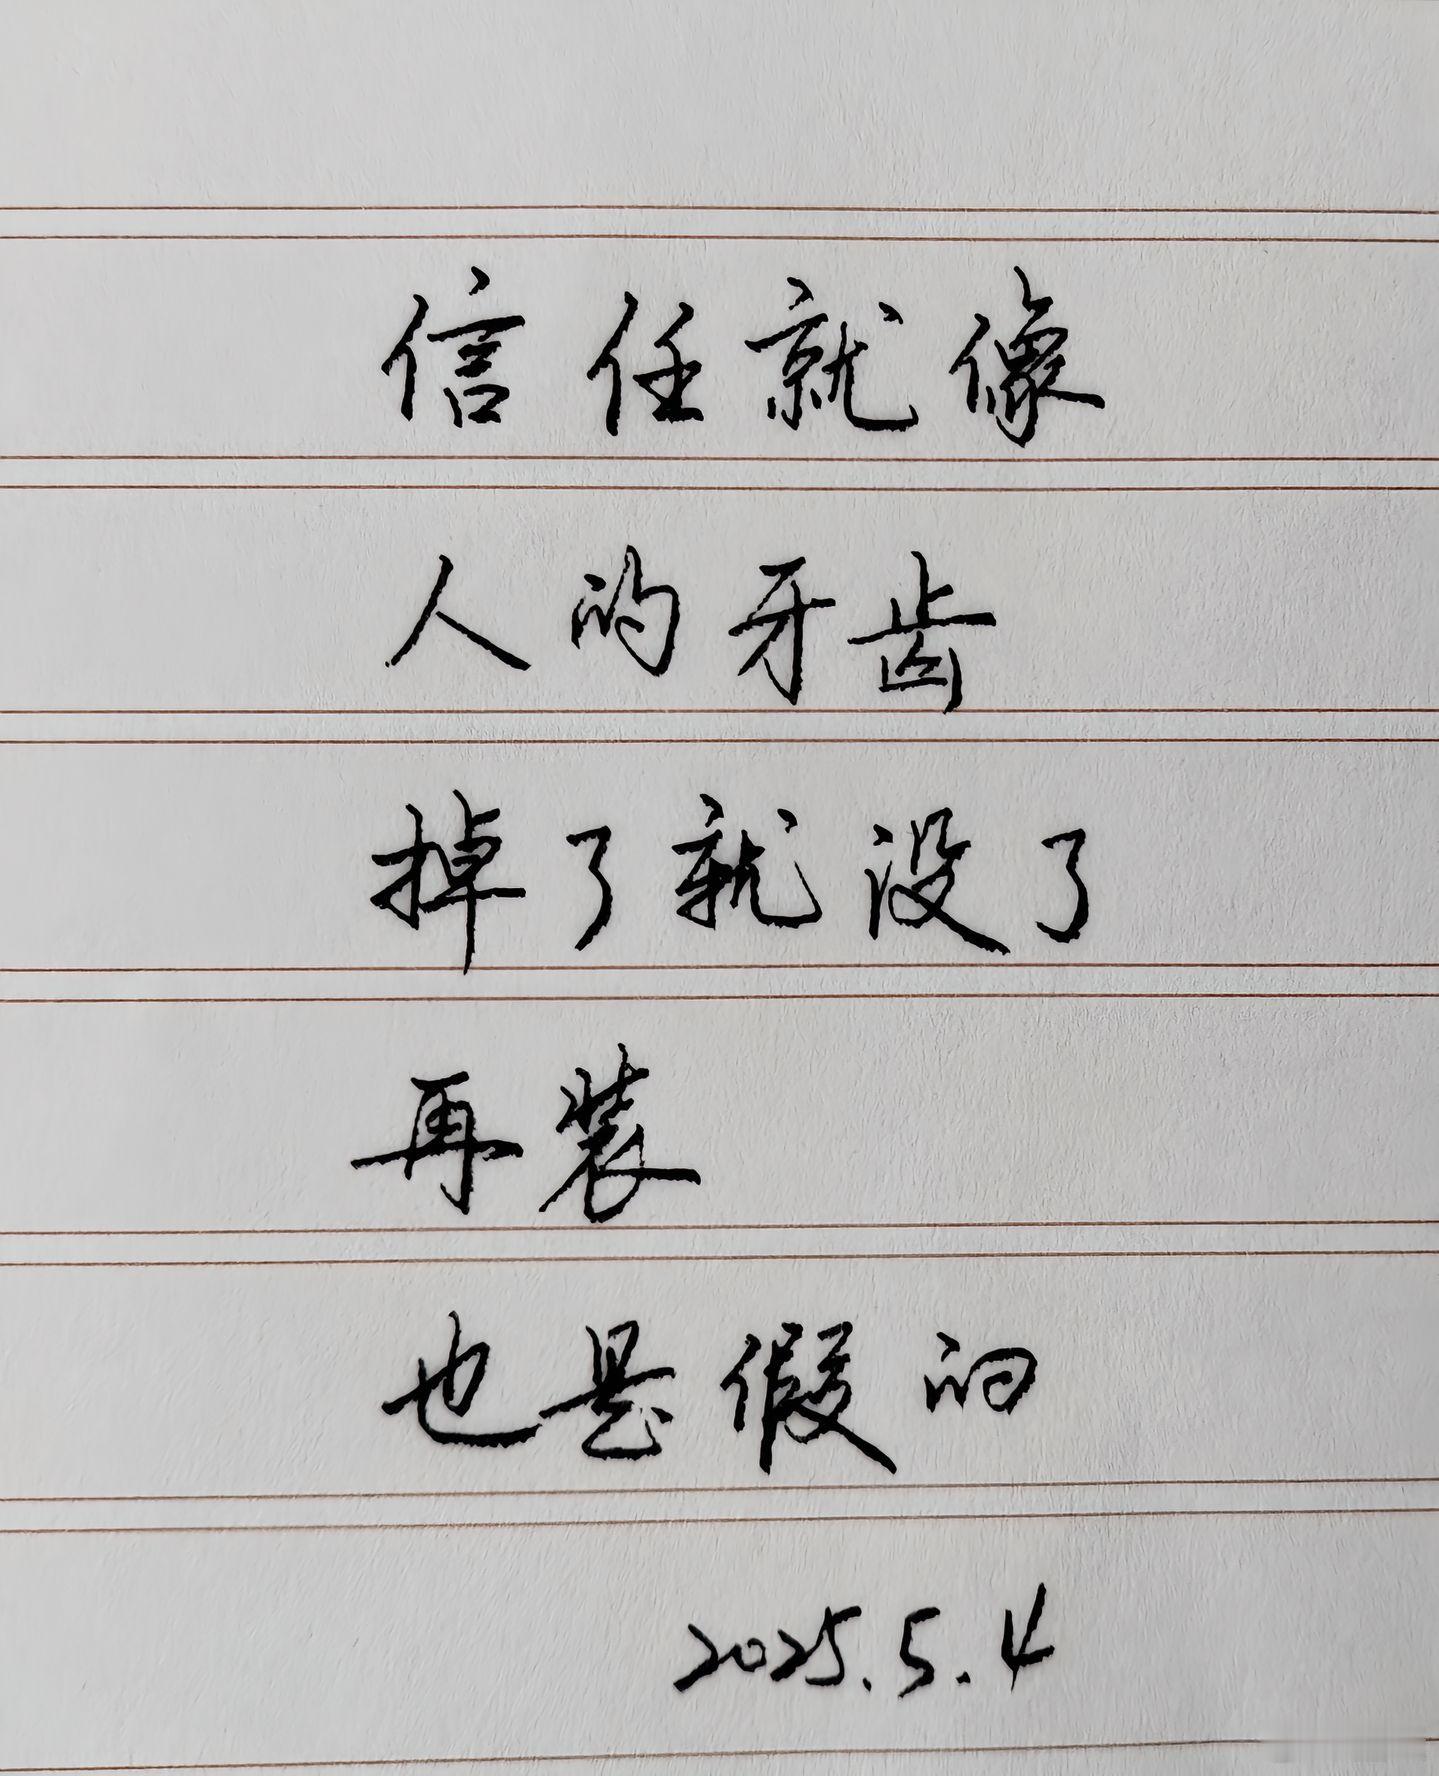 信任就像
人的牙齿
掉了就没了
再装
也是假的
2025.5.4